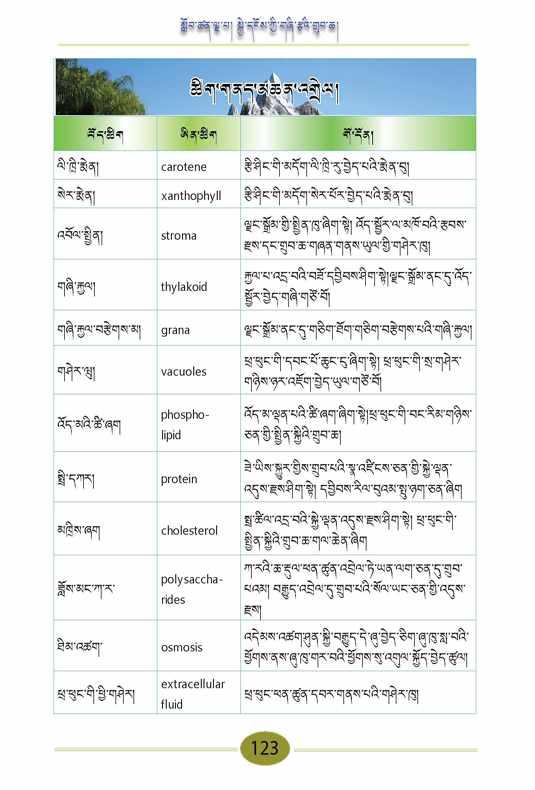 སློབ་ཚན་ལྔ་པ། སྐྱེ་དངོས་ཀྱི་གཞི་རྩའི་གྲུབ་ཆ།
ཚིག་གནད་མཆན་འགྲེལ།
བོད་ཚིག
ཨིན་ཚིག
གོ་དོན།
ལི་ཁྲི་རྨེན།
carotene
རྩི་ཤིང་གི་མདོག་ལི་ཁྲི་རུ་བྱེད་པའི་རྨེན་བུ།
སེར་རྨེན།
xanthophyll
རྩི་ཤིང་གི་མདོག་སེར་པོར་བྱེད་པའི་རྨེན་བུ།
འབོལ་སྤྲིན།
stroma
ལྗང་སྒྲོམ་གྱི་སྤྲིན་ཁུ་ཞིག་སྟེ། འོད་སྦྱོར་ལ་མཁོ་བའི་རྩབས་
རྫས་དང་གྲུབ་ཆ་གཞན་གནས་ཡུལ་གྱི་གཤེར་ཁུ།
གཞི་རྐྱལ།
thylakoid
རྐྱལ་པ་འདྲ་བའི་བཟོ་དབྱིབས་ཤིག་སྟེ།ལྗང་སྒྲོམ་ནང་དུ་འོད་
སྦྱོར་བྱེད་གཞི་གཙོ་བོ།
གཞི་རྐྱལ་བརྩེགས་མ།
grana
ལྗང་སྒྲོམ་ནང་དུ་གཅིག་ཐོག་གཅིག་བརྩེགས་པའི་གཞི་རྐྱལ།
གཤེར་ཕུ།
vacuoles
ཕྲ་ཕུང་གི་དབང་པོ་ཆུང་ངུ་ཞིག་སྟེ། ཕྲ་ཕུང་གི་སྲ་གཤེར་
གཉིས་ཉར་འཇོག་བྱེད་ཡུལ་གཙོ་བོ།
འོད་མའི་ཚི་ཞག
phospho-
lipid
འོད་མ་ལྡན་པའི་ཚི་ཞག་ཞིག་སྟེ།ཕྲ་ཕུང་གི་བང་རིམ་གཉིས་
ཅན་གྱི་སྤྲིན་སྐྱིའི་གྲུབ་ཆ།
སྤྲི་དཀར།
protein
ཟེ་ཡིས་སྐྱུར་གྱིས་གྲུབ་པའི་སྣ་འཛིངས་ཅན་གྱི་སྐྱེ་ལྡན་
འདུས་རྫས་ཤིག་སྟེ། དབྱིབས་རིལ་བུའམ་སྤུ་ཉག་ཅན་ཞིག
མཁྲིས་ཞག
cholesterol
སྤྲ་ཚིལ་འདྲ་བའི་སྐྱེ་ལྡན་འདུས་རྫས་ཤིག་སྟེ། ཕྲ་ཕུང་གི་
སྤྲིན་སྐྱིའི་གྲུབ་ཆ་གལ་ཆེན་ཞིག
ཟློས་མང་ཀ་ར་
polysaccha-
rides
ཀ་རའི་ཆ་རྡུལ་ཕན་ཚུན་འབྲེལ་ཏེ་ཡན་ལག་ཅན་དུ་གྲུབ་
པའམ། བརྒྱུད་འབྲེལ་དུ་གྲུབ་པའི་སོལ་ཡང་ཅན་གྱི་འདུས་
རྫས།
ཐིམ་འཚག་
osmosis
འདེམས་འཚག་ཤུན་སྐྱི་བརྒྱུད་དེ་ཞུ་བྱེད་ཅིག་ཞུ་ཁུ་སླ་བའི་
ཕྱོགས་ནས་ཞུ་ཁུ་གར་བའི་ཕྱོགས་སུ་འགུལ་སྐྱོད་བྱེད་ཚུལ།
ཕྲ་ཕུང་གི་ཕྱི་གཤེར།
extracellular
fluid
ཕྲ་ཕུང་ཕན་ཚུན་དབར་གནས་པའི་གཤེར་ཁུ།
123